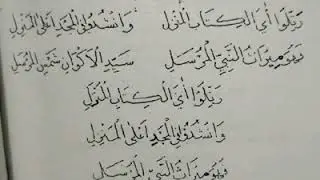 رَتِّلُوْا أٰيَ الْكِتَابِ الْمُنْزَلِ وَانْشُدُوْا فِي الْمَجْدِ اَعْلَى الْمَنْزِلِ
فَهُوَ مِيْرَاثُ النَّبِيِّ الْمُرْسَلِ سَيِّدِ الْاَكْوَانِ شَمْسِ الرُّسُلِ
رَتِّلُوْا أٰيَ الْكِتَابِ الْمُنْزَلِ
وَانْشُدُوْا فِي الْمَجْدِ اَعْلَى الْمَنْزِلِ
فَهُوَ مِيْرَاثُ النَّبِيِّ الْمُرْسَلِ